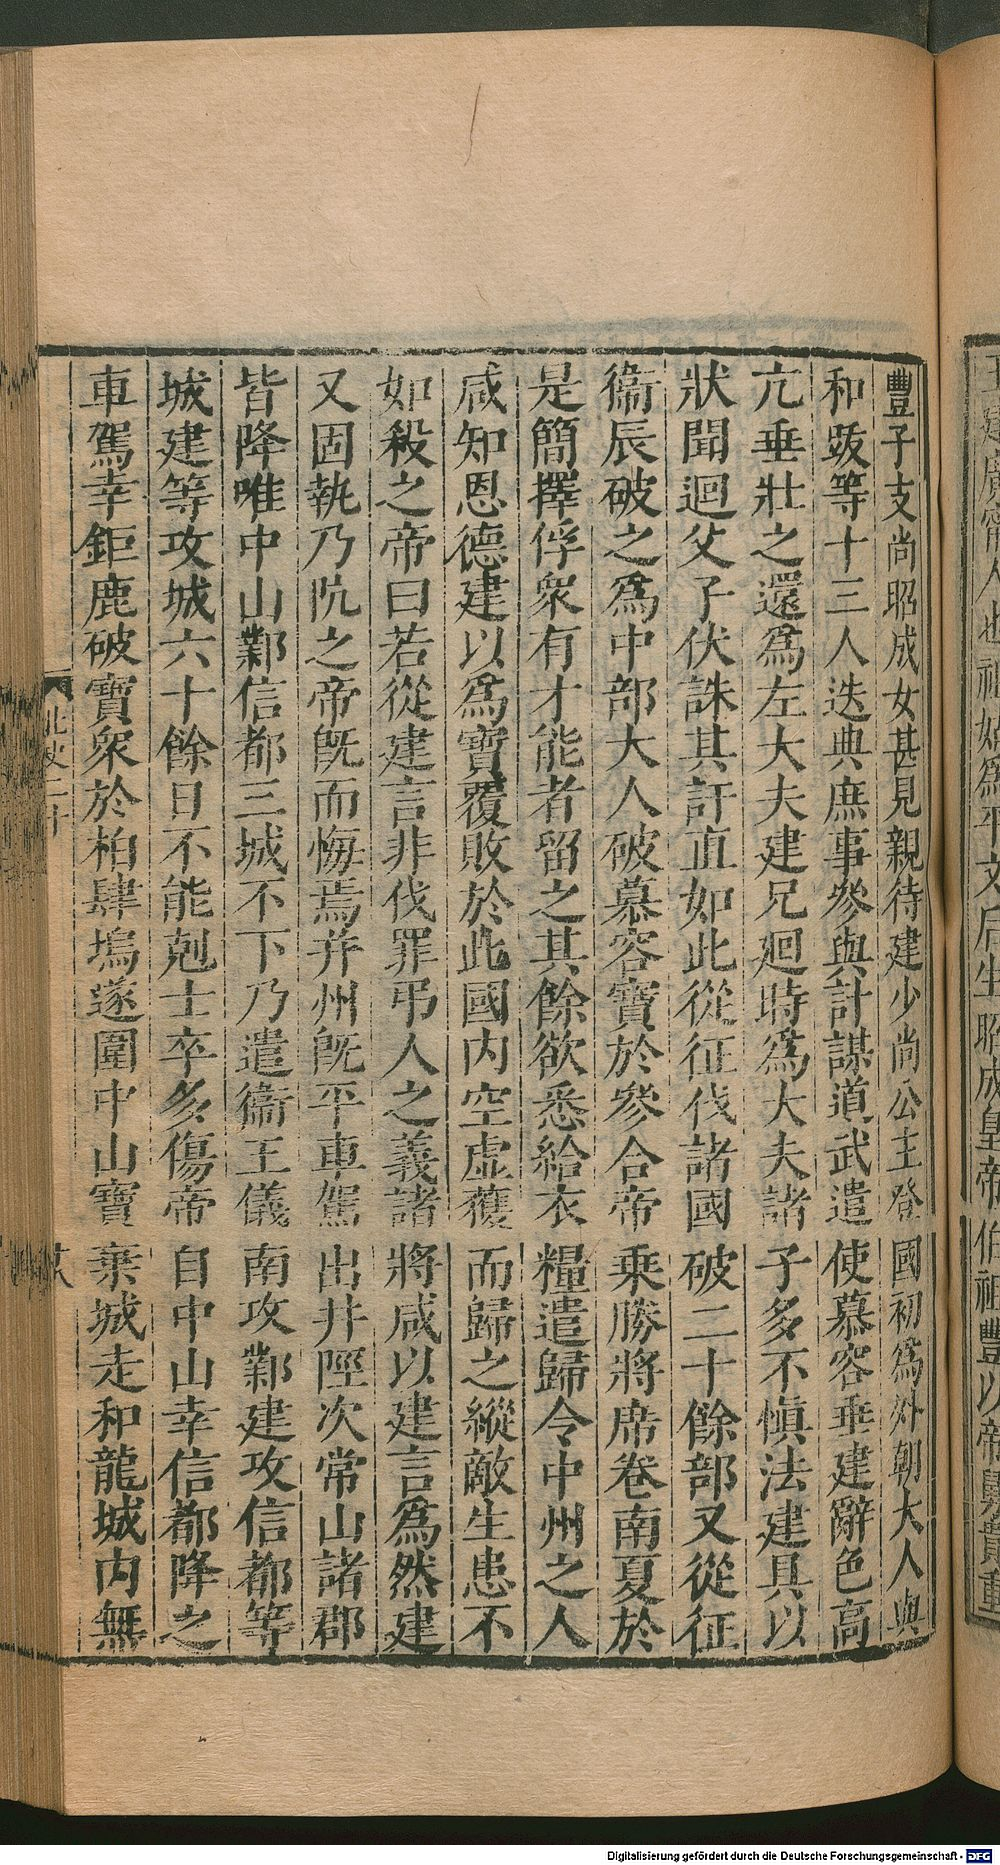 豐子支尚昭成女甚見親待建少尚公主登國初爲外朝大人與
和跋等十三人迭典庶事參與計謀道武遣使慕容垂建辭色高
亢垂壯之還爲左大夫建兄迴時爲大夫諸子多不愼法建具以
狀聞迴父子伏誅其訐直如此從征伐諸國破二十餘部又從征
衞辰破之爲中部大人破慕容寶於參合帝乘勝將席卷南夏於
是簡擇俘衆有才能者留之其餘欲悉給衣糧遣歸令中州之人
咸知恩德建以爲寶覆敗於此國内空虚獲而歸之縱敵生患不
如殺之帝曰若從建言非伐罪弔人之義諸將咸以建言爲然建
又固執乃阬之帝旣而悔焉并州旣平車駕出井陘次常山諸郡
皆降唯中山鄴信都三城不下乃遣衞王儀南攻鄴建攻信都等
城建等攻城六十餘日不能剋士卒多傷帝自中山幸信都降之
車駕幸鉅鹿破寶衆於柏肆塢遂圍中山寶棄城走和龍城内無
北史二十
王建廣甯人也祖姑爲平文后生昭成皇帝伯祖豐以帝舅貴重
Digitalisierung gefördert durch die Deutsche Forschungsgemeinschaft - DFG